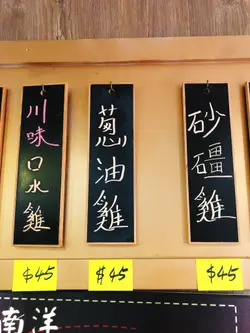 川味口水雞
葱油雞
砂礓雞
$45
$45
$45
南洋